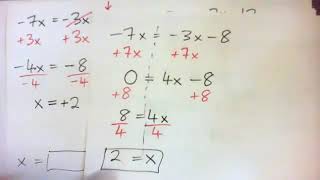 -7x = -3x
+3x +3x
-4x = -8
-4 -4
x = +2
x =
-7x = -3x -8
+7x +7x
0 = 4x -8
+8 +8
8 = 4x
4 4
2 = x